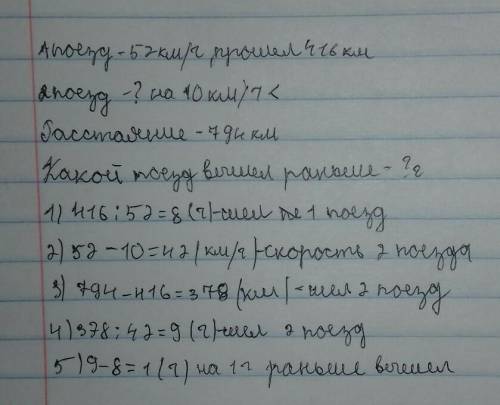 1 поезд - 52 км/ч, прошел 416 км
2 поезд - ? на 10 км/ч <
Расстояние - 794 км
Какой поезд вышел раньше - ? г
1) 416 : 52 = 8 (ч) - шел 1 поезд
2) 52 - 10 = 42 (км/ч) - скорость 2 поезда
3) 794 - 416 = 378 (км) - шел 2 поезд
4) 378 : 42 = 9 (ч) - шел 2 поезд
5) 9 - 8 = 1 (ч) на 1ч раньше вышел